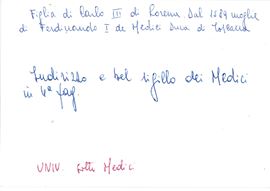 Figlia di Carlo III di Lorena dal 1589 moglie
di Ferdinando I de Medici Duca di Toscana
Indirizzo e bel sigillo dei Medici
in 4ª pag.
UNIV. Medic.